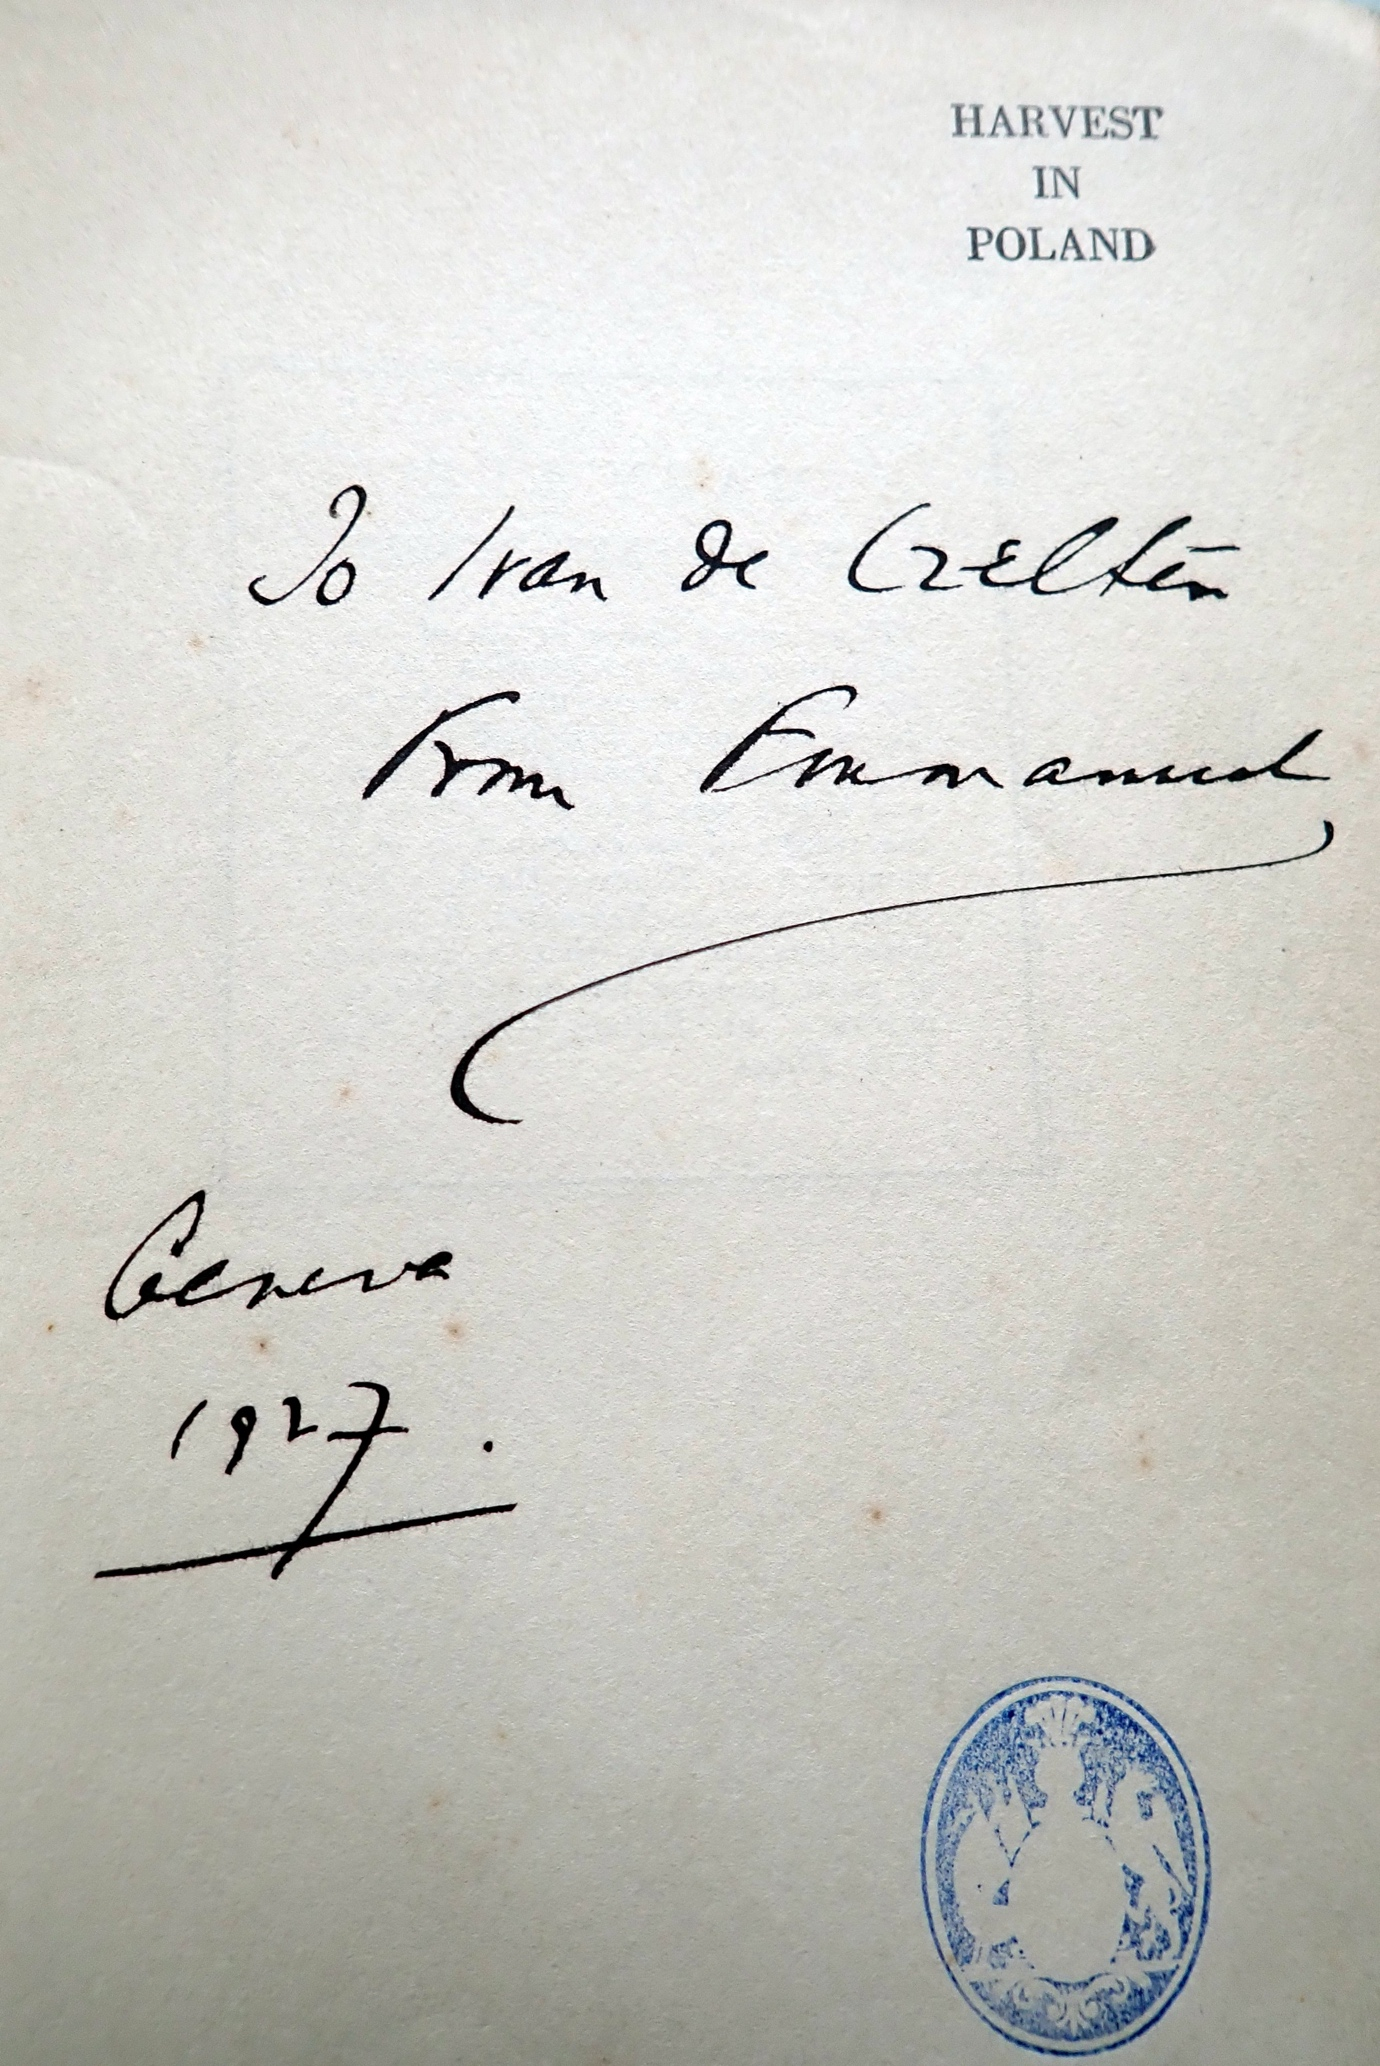 HARVEST
IN
POLAND
To Ivan de
From Emmanuel
Geneva
1927.